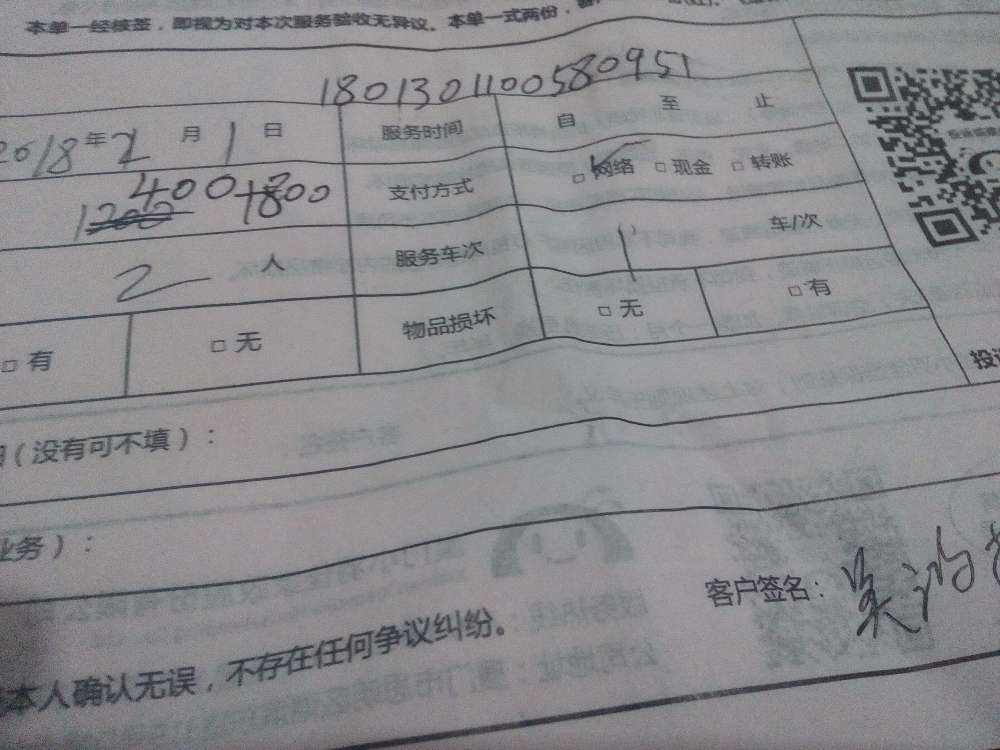 本单一经核签，即视为对本次服务验收无异议。本单一式两份，
180130110058095１
2018年2月1日 服务时间 自 至 止
400+800 支付方式 □网络 □现金 □转账
2人 服务车次 1 车/次
□有 □无 物品损坏 □无 □有
投
（没有可不填）：
业务）：
客户签名：吴鸿
本人确认无误，不存在任何争议纠纷。